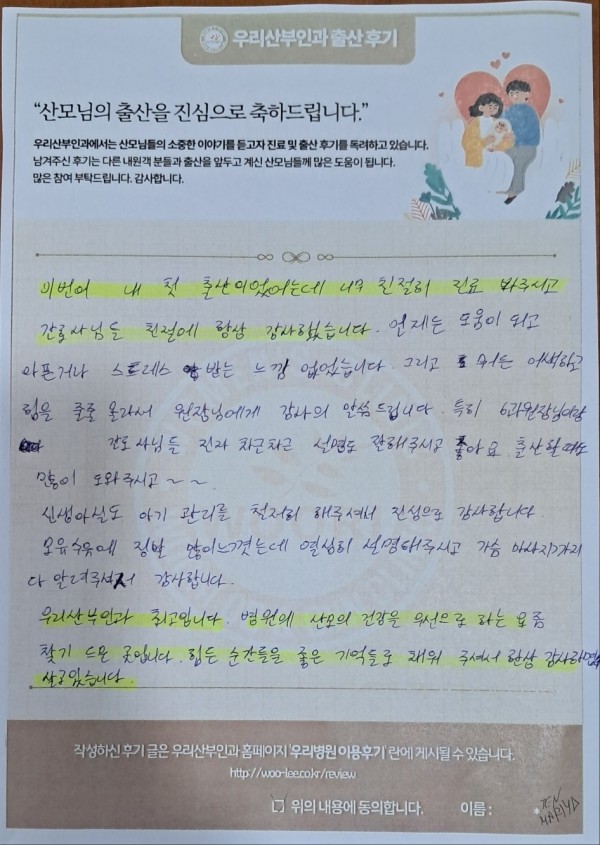 우리산부인과 출산 후기
“산모님의 출산을 진심으로 축하드립니다.”
우리산부인과에서는 산모님들의 소중한 이야기를 듣고자 진료 및 출산 후기를 독려하고 있습니다.
남겨주신 후기는 다른 내원객 분들과 출산을 앞두고 계신 산모님들께 많은 도움이 됩니다.
많은 참여 부탁드립니다. 감사합니다.
이번이 내 첫 출산이었어는데 너무 친절히 진료 봐주시고
간호사님들 친절에 항상 감사했습니다. 언제든 도움이 되고
아픈거나 스트레스 받는 느낌 없었습니다. 그리고 뭐든 어색하고
힘을 줄줄 몰라서 원장님에게 감사의 말씀드립니다. 특히 6과원장님이랑
간호사님들 진짜 차근차근 설명도 잘해주시고 좋아요. 출산할때도
많이 도와주시고~~.
신생아실도 아기 관리를 철저히 해주셔서 진심으로 감사합니다.
모유수유에 정말 많이느꼈는데 열심히 설명해주시고 가슴 마사지까지
다 알려주셔서 감사합니다.
우리산부인과 최고입니다. 병원에 산모의 건강을 우선으로 하는 요즘
찾기 드문 곳입니다. 힘든 순간들을 좋은 기억들로 채워 주셔서 항상 감사하면서
살고있습니다.
작성하신 후기 글은 우리산부인과 홈페이지 '우리병원 이용후기' 란에 게시될 수 있습니다.
http://woo-lee.co.kr/review
위의 내용에 동의합니다. 이름 : TEN MARIYA